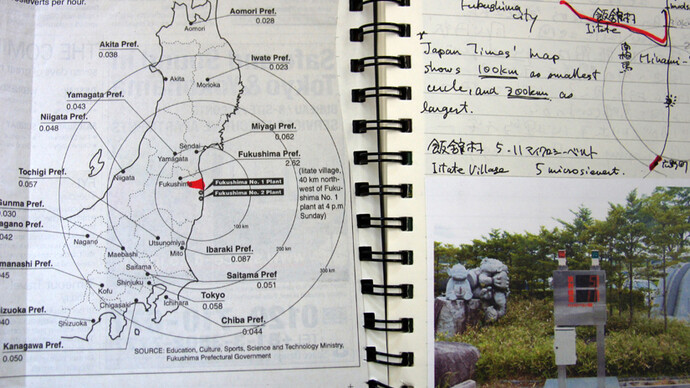 microsieverts per hour.
Aomori Pref.
0.028
Aomori
Akita Pref.
0.038
Iwate Pref.
0.023
Akita
Morioka
Yamagata Pref.
0.043
Niigata Pref.
0.048
Miyagi Pref.
0.062
Sendai
Yamagata
Fukushima Pref.
2.62
Tochigi Pref.
0.057
Niigata
Fukushima
Fukushima No. 1 Plant
Fukushima No. 2 Plant
(Iitate village,
40 km north-
west of Fuku-
shima No. 1
plant at 4 p.m.
Sunday)
Gunma Pref.
0.030
Nagano Pref.
Nagano
Maebashi
Utsunomiya
Mito
100 km
200 km
300 km
Ibaraki Pref.
0.087
Saitama Pref
0.051
Saitama
Shinjuku
Kofu
Chigasaki
Ichihara
Shizuoka
Tokyo
0.058
Chiba Pref.
0.044
Kanagawa Pref.
0.050
SOURCE: Education, Culture, Sports, Science and Technology Ministry,
Fukushima Prefectural Government
Fukushima
city
飯舘村
Iitate
南相馬
Minami-
Japan Times' map
shows 100km as smallest
circle, and 300km as
largest.
飯舘村 5.11マイクロシーベルト
Iitate Village 5 microsievert.